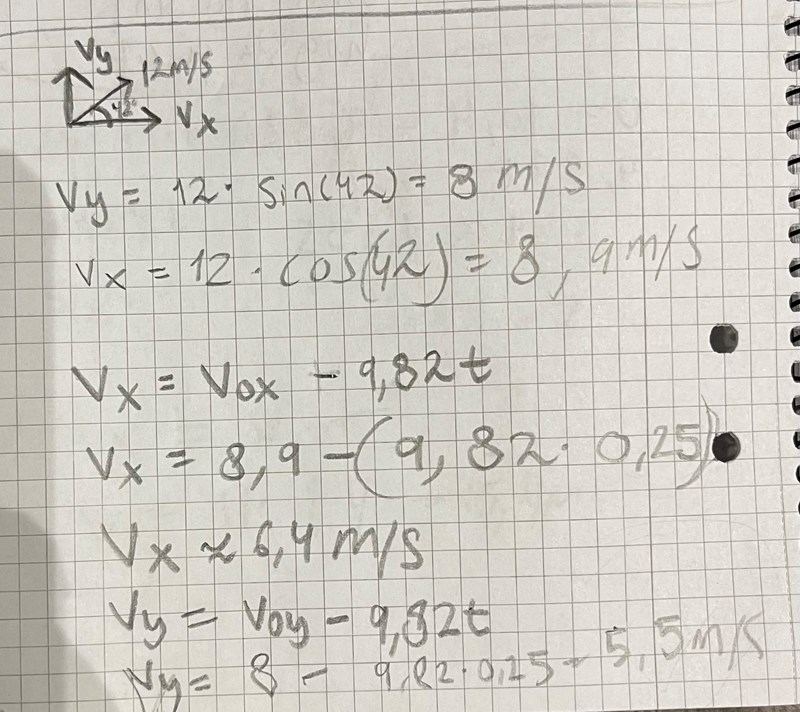 Vy
12m/s
42°
Vx
Vy = 12 · sin(42) = 8 m/s
Vx = 12 · cos(42) = 8,9m/s
Vx = Vox - 9,82t
Vx = 8,9 - (9,82 · 0,25)
Vx ≈ 6,4 m/s
Vy = Voy - 9,82t
Vy = 8 - 9,82 · 0,25 = 5,5m/s